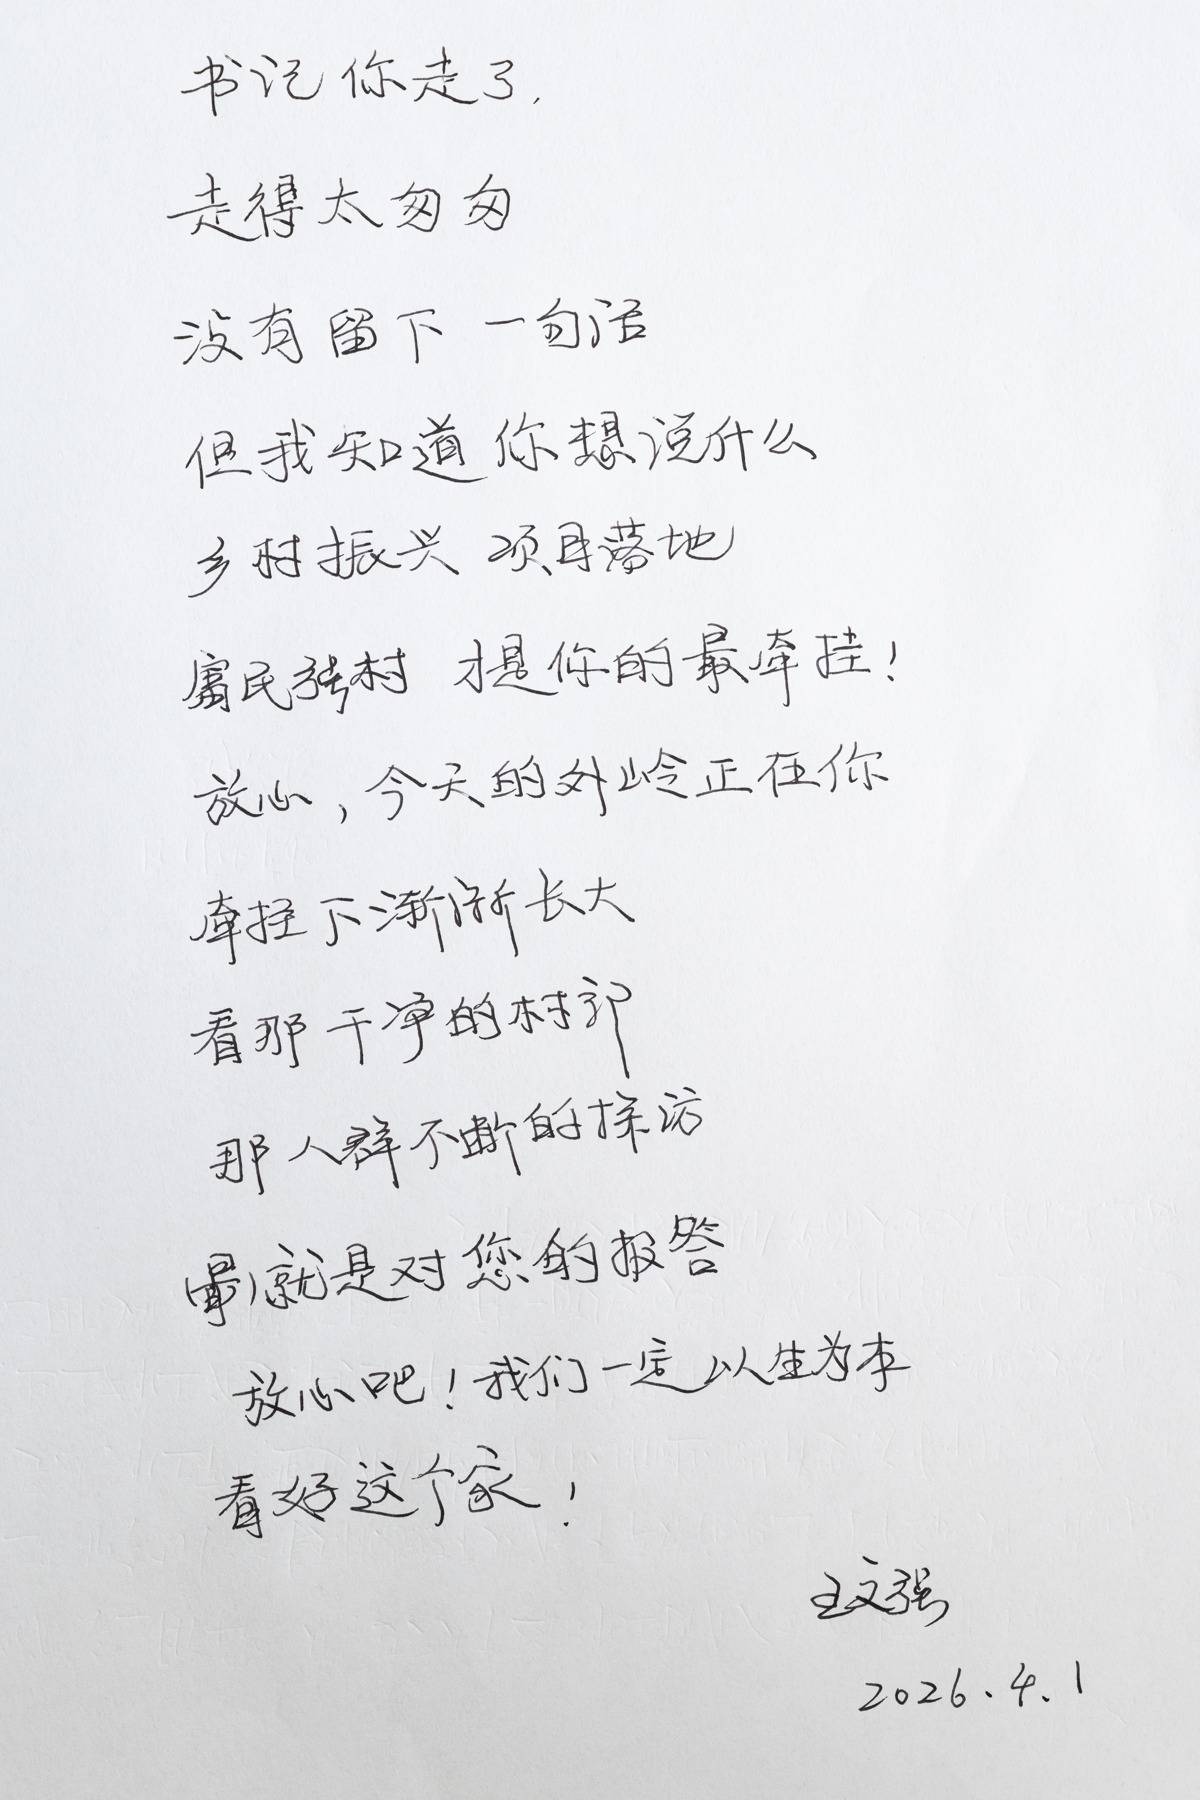 书记 你走了,
走得太匆匆
没有留下 一句话
但我知道 你想说什么
乡村振兴 项目落地
富民强村 才是你的最牵挂!
放心,今天的外岭正在你
牵挂下渐渐长大
看那干净的村部
那人群不断的探访
就是对您的报答
放心吧!我们一定以生为本
看好这个家!
王文强
2026.4.1